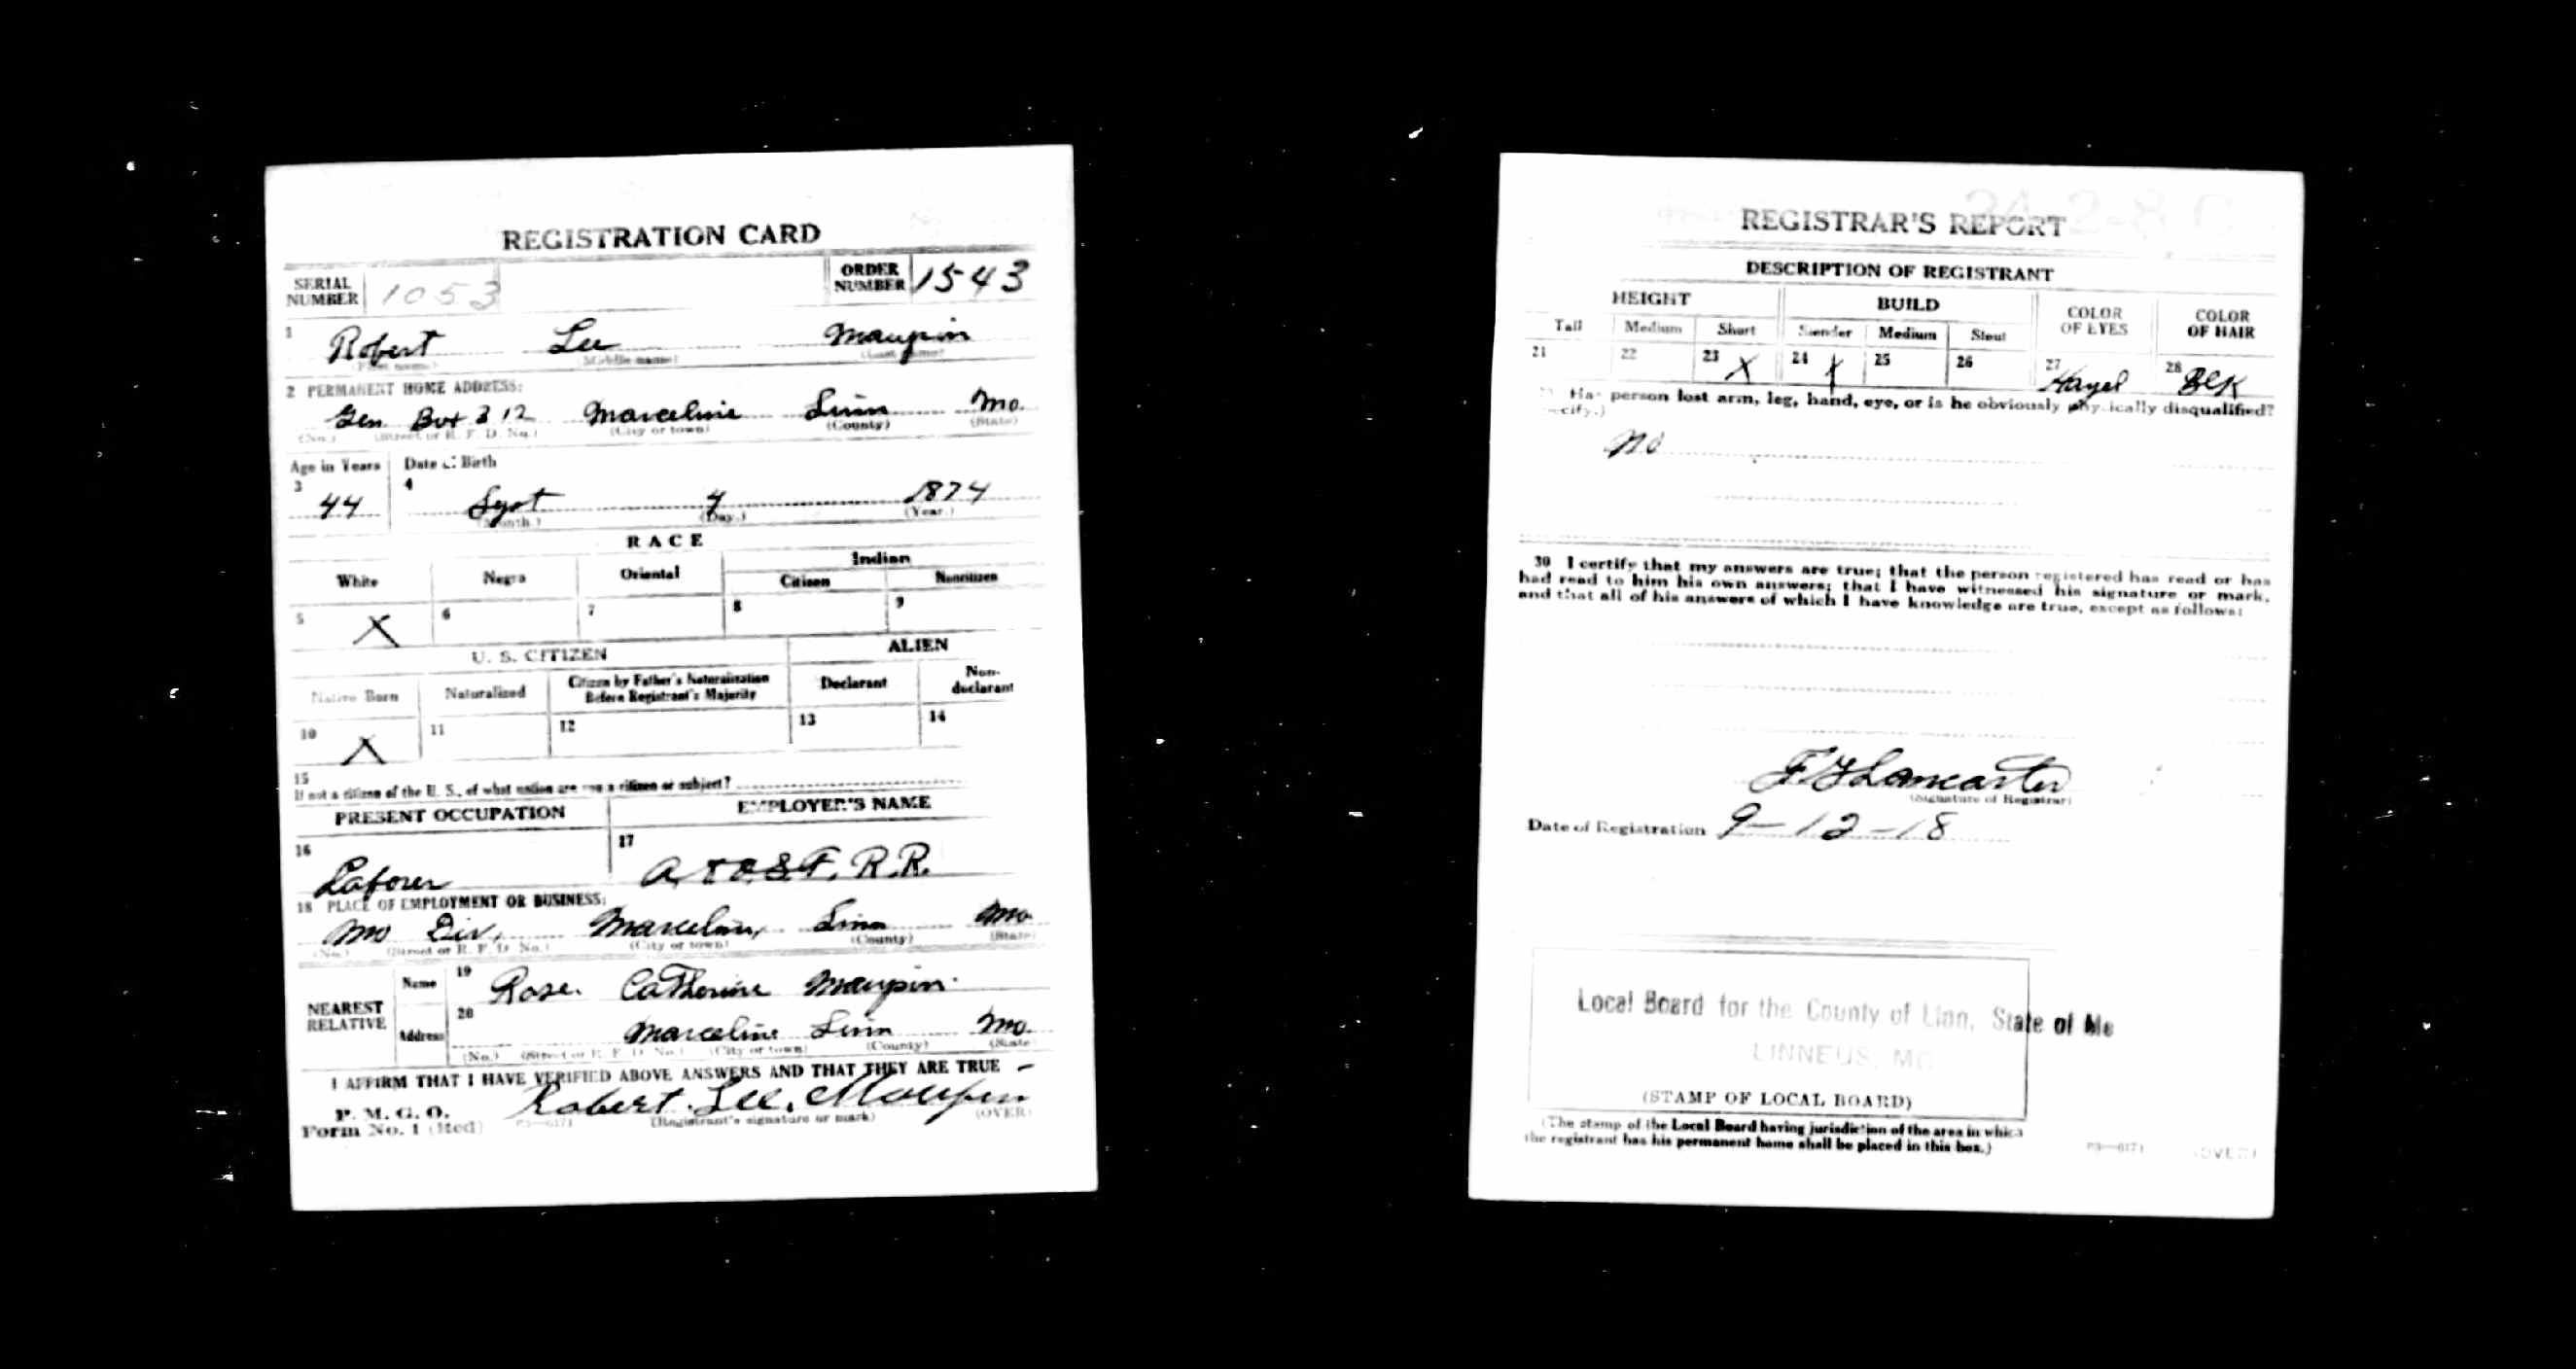 REGISTRATION CARD
SERIAL NUMBER 1053 ORDER NUMBER 1543
1 Robert Lee Maupin
(First name) (Middle name) (Last name)
2 PERMANENT HOME ADDRESS:
Gen Box 312 Marceline Linn Mo.
(No.) (Street or R. F. D. No.) (City or town) (County) (State)
Age in Years Date of Birth
3 44 4 Sept 1874
(Month.) (Day.) (Year.)
RACE
White Negro Oriental Indian
Citizen Noncitizen
5 X 6 7 8 9
U. S. CITIZEN ALIEN
Native Born Naturalized Citizen by Father's Naturalization Before Registrant's Majority Declarant Non-declarant
10 X 11 12 13 14
15
If not a citizen of the U. S., of what nation are you a citizen or subject?
PRESENT OCCUPATION EMPLOYER'S NAME
16 Laborer 17 A. T. & S. F. R.R.
18 PLACE OF EMPLOYMENT OR BUSINESS:
Mo Div, Marceline, Linn Mo
(No.) (Street or R. F. D. No.) (City or town) (County) (State)
NEAREST RELATIVE
Name 19 Rose Catherine Maupin
Address 20 Marceline Linn Mo.
(No.) (Street or R. F. D. No.) (City or town) (County) (State)
I AFFIRM THAT I HAVE VERIFIED ABOVE ANSWERS AND THAT THEY ARE TRUE
P. M. G. O.
Form No. 1 (Red) Robert. Lee. Maupin
(Registrant's signature or mark) (OVER)
REGISTRAR'S REPORT
DESCRIPTION OF REGISTRANT
HEIGHT BUILD COLOR OF EYES COLOR OF HAIR
Tall Medium Short Slender Medium Stout
21 22 23 X 24 X 25 26 27 Hazel 28 Blk
Has person lost arm, leg, hand, eye, or is he obviously physically disqualified?
No
30 I certify that my answers are true; that the person registered has read or has
had read to him his own answers; that I have witnessed his signature or mark,
and that all of his answers of which I have knowledge are true, except as follows:
F. F. Lancaster
(Signature of Registrar)
Date of Registration 9-12-18
Local Board for the County of Linn, State of Mo
LINNEUS, MO
(STAMP OF LOCAL BOARD)
(The stamp of the Local Board having jurisdiction of the area in which
the registrant has his permanent home shall be placed in this box.)
(OVER)